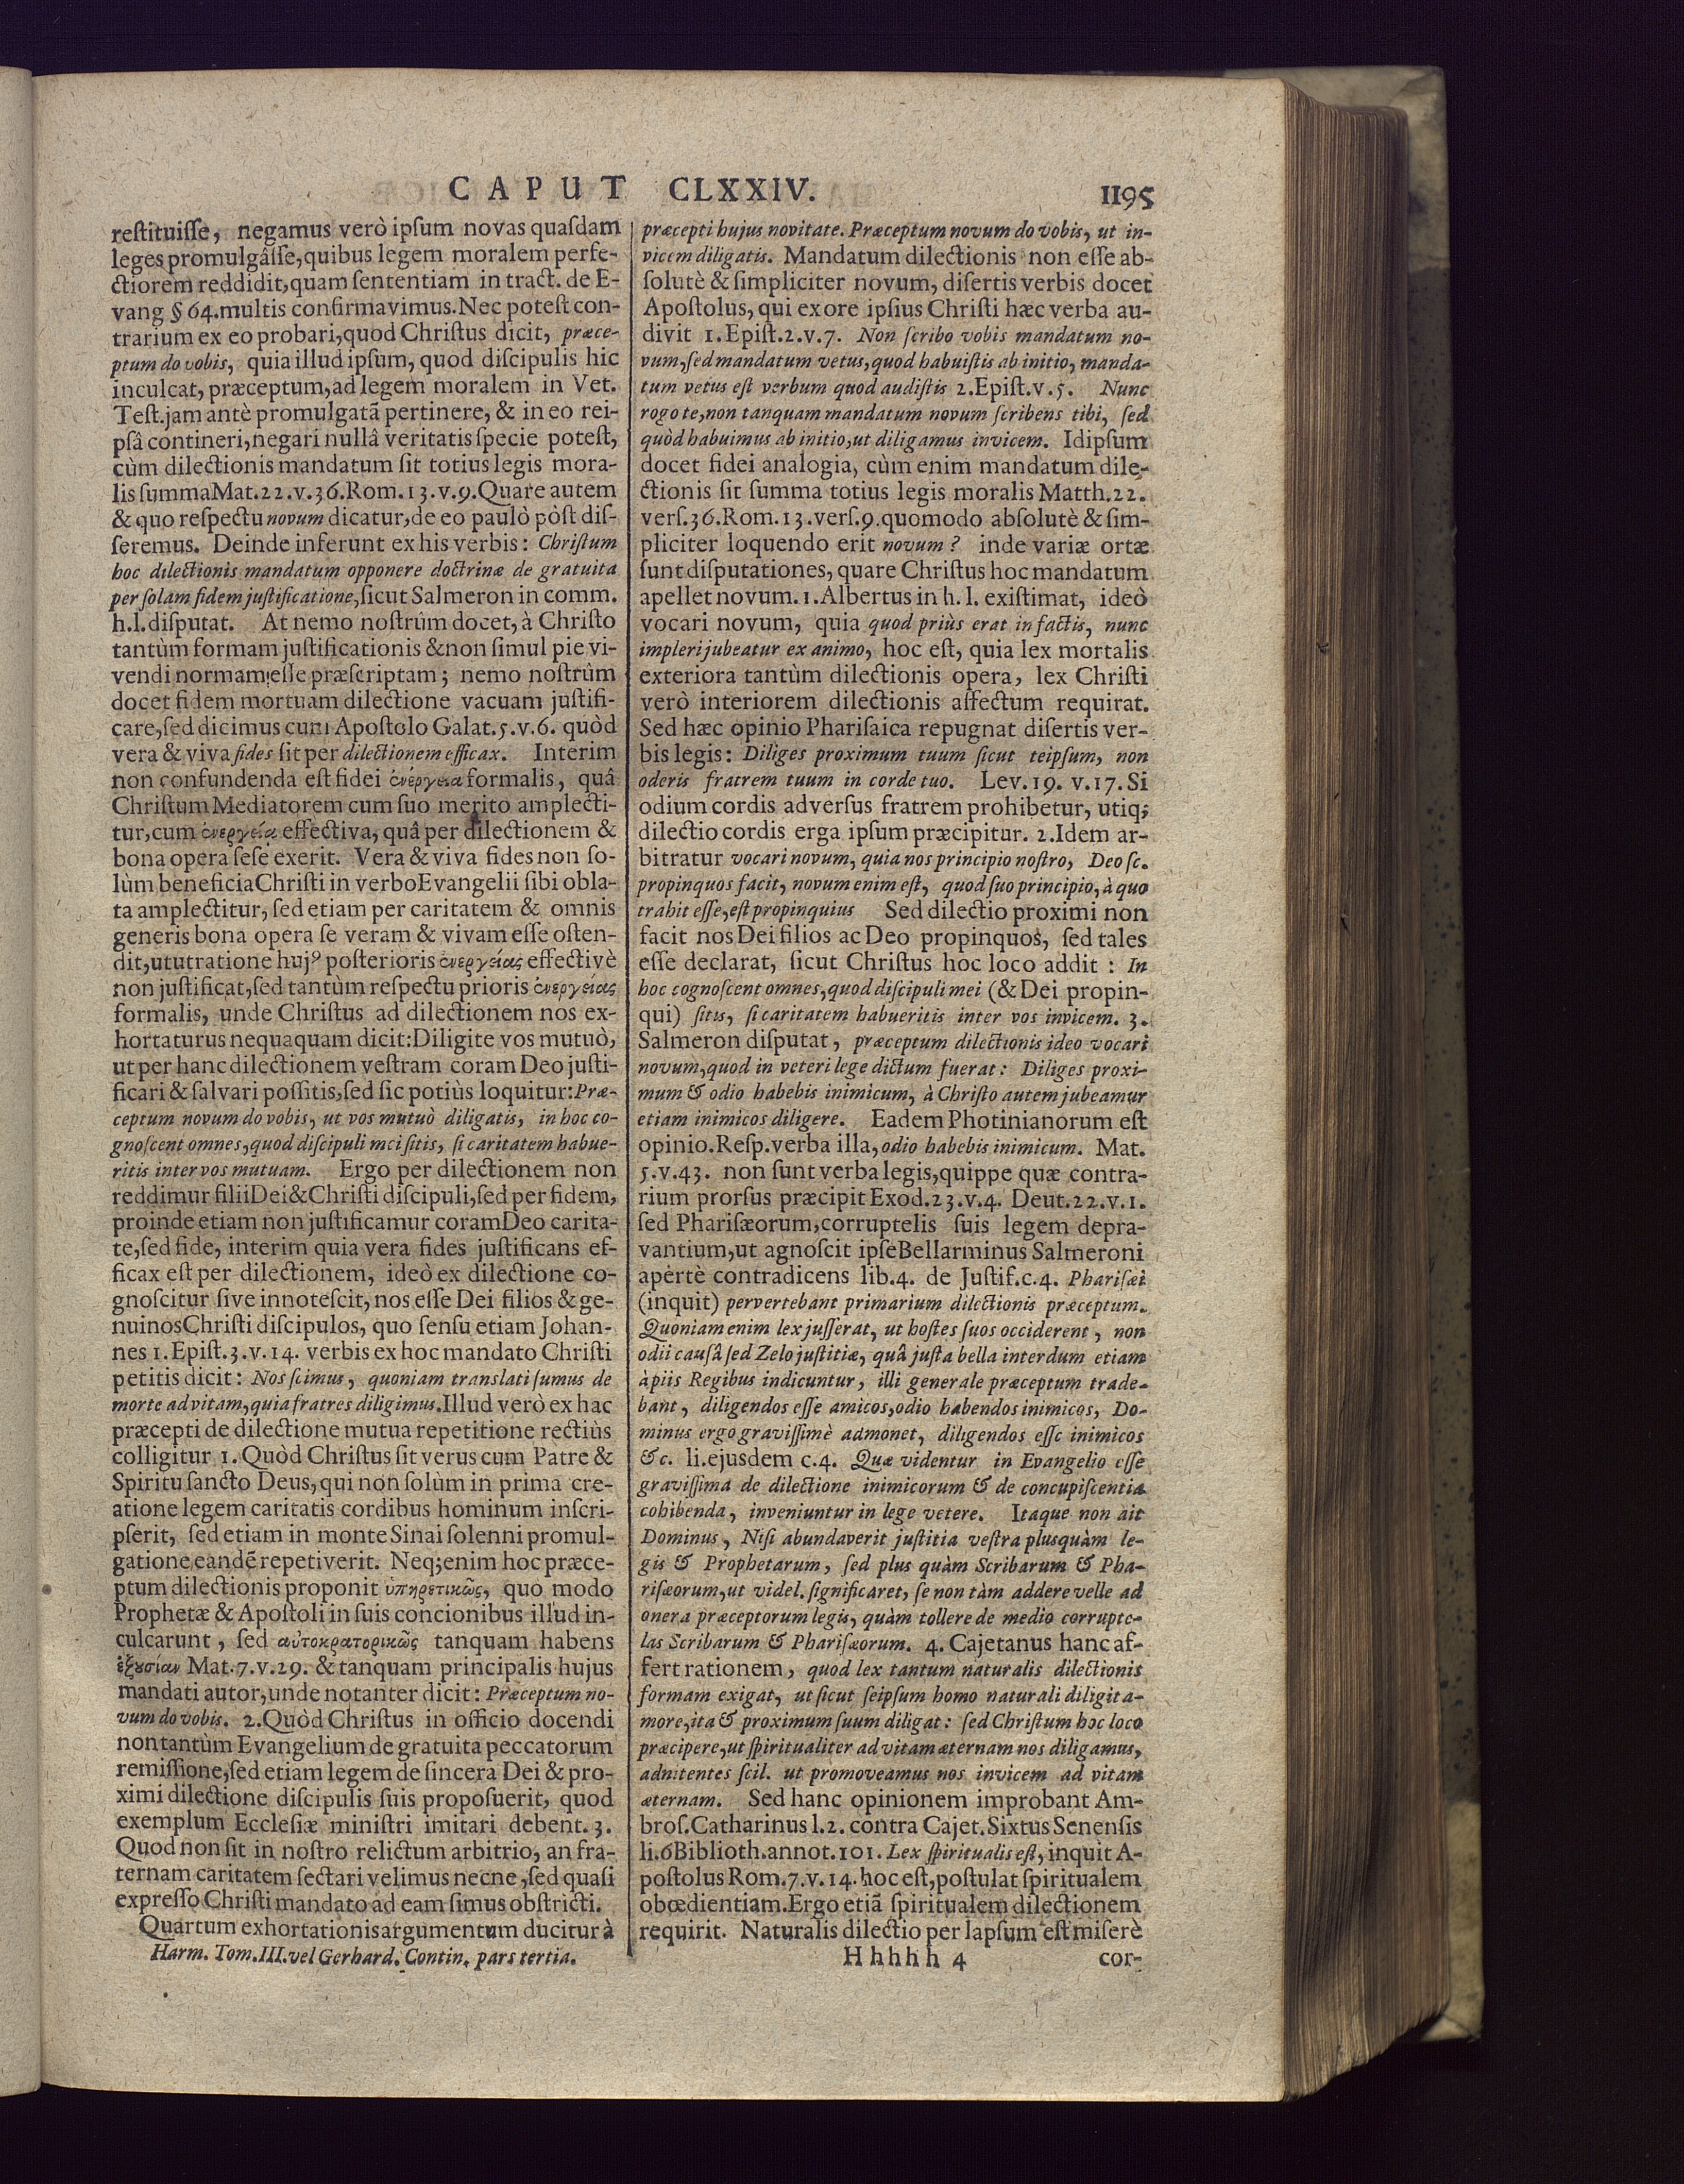 CAPUT CLXXIV. 1195
reſtituiſſe, negamus verò ipſum novas quaſdam
leges promulgâſſe, quibus legem moralem perfe-
ctiorem reddidit, quam ſententiam in tract. de E-
vang § 64. multis confirmavimus. Nec poteſt con-
trarium ex eo probari, quod Chriſtus dicit, præce-
ptum do vobis, quia illud ipſum, quod diſcipulis hic
inculcat, præceptum, ad legem moralem in Vet.
Teſt. jam antè promulgatã pertinere, & in eo rei-
pſâ contineri, negari nullâ veritatis ſpecie poteſt,
cùm dilectionis mandatum ſit totius legis mora-
lis ſumma Mat. 22. v. 36. Rom. 13. v. 9. Quare autem
& quo reſpectu novum dicatur, de eo paulò pòſt diſ-
ſeremus. Deinde inferunt ex his verbis: Chriſtum
hoc dilectionis mandatum opponere doctrinæ de gratuita
per ſolam fidem juſtificatione, ſicut Salmeron in comm.
h. l. diſputat. At nemo noſtrûm docet, à Chriſto
tantùm formam juſtificationis & non ſimul pie vi-
vendi normam eſſe præſcriptam; nemo noſtrûm
docet fidem mortuam dilectione vacuam juſtifi-
care, ſed dicimus cum Apoſtolo Galat. 5. v. 6. quòd
vera & viva fides ſit per dilectionem efficax. Interim
non confundenda eſt fidei ἐνέργεια formalis, quâ
Chriſtum Mediatorem cum ſuo merito amplecti-
tur, cum ἐνεργείᾳ effectiva, quâ per dilectionem &
bona opera ſeſe exerit. Vera & viva fides non ſo-
lùm beneficia Chriſti in verbo Evangelii ſibi obla-
ta amplectitur, ſed etiam per caritatem & omnis
generis bona opera ſe veram & vivam eſſe oſten-
dit, ut ut ratione hujꝰ poſterioris ἐνεργείας effectivè
non juſtificat, ſed tantùm reſpectu prioris ἐνεργείας
formalis, unde Chriſtus ad dilectionem nos ex-
hortaturus nequaquam dicit: Diligite vos mutuò,
ut per hanc dilectionem veſtram coram Deo juſti-
ficari & ſalvari poſſitis, ſed ſic potiùs loquitur: Præ-
ceptum novum do vobis, ut vos mutuò diligatis, in hoc co-
gnoſcent omnes, quod diſcipuli mei ſitis, ſi caritatem habue-
ritis inter vos mutuam. Ergo per dilectionem non
reddimur filii Dei & Chriſti diſcipuli, ſed per fidem,
proinde etiam non juſtificamur coram Deo carita-
te, ſed fide, interim quia vera fides juſtificans ef-
ficax eſt per dilectionem, ideò ex dilectione co-
gnoſcitur ſive innoteſcit, nos eſſe Dei filios & ge-
nuinos Chriſti diſcipulos, quo ſenſu etiam Johan-
nes 1. Epiſt. 3. v. 14. verbis ex hoc mandato Chriſti
petitis dicit: Nos ſcimus, quoniam translati ſumus de
morte ad vitam, quia fratres diligimus. Illud verò ex hac
præcepti de dilectione mutua repetitione rectiùs
colligitur 1. Quòd Chriſtus ſit verus cum Patre &
Spiritu ſancto Deus, qui non ſolùm in prima cre-
atione legem caritatis cordibus hominum inſcri-
pſerit, ſed etiam in monte Sinai ſolenni promul-
gatione eandẽ repetiverit. Neq; enim hoc præce-
ptum dilectionis proponit ὑπηρετικῶς, quo modo
Prophetæ & Apoſtoli in ſuis concionibus illud in-
culcarunt, ſed αὐτοκρατορικῶς tanquam habens
ἐξȣσίαν Mat. 7. v. 29. & tanquam principalis hujus
mandati autor, unde notanter dicit: Præceptum no-
vum do vobis. 2. Quòd Chriſtus in officio docendi
non tantùm Evangelium de gratuita peccatorum
remiſſione, ſed etiam legem de ſincera Dei & pro-
ximi dilectione diſcipulis ſuis propoſuerit, quod
exemplum Eccleſiæ miniſtri imitari debent. 3.
Quod non ſit in noſtro relictum arbitrio, an fra-
ternam caritatem ſectari velimus necne, ſed quaſi
expreſſo Chriſti mandato ad eam ſimus obſtricti.
Quartum exhortationis argumentum ducitur à
Harm. Tom. III. vel Gerhard. Contin. pars tertia.
præcepti hujus novitate. Præceptum novum do vobis, ut in-
vicem diligatis. Mandatum dilectionis non eſſe ab-
ſolutè & ſimpliciter novum, diſertis verbis docet
Apoſtolus, qui ex ore ipſius Chriſti hæc verba au-
divit 1. Epiſt. 2. v. 7. Non ſcribo vobis mandatum no-
vum, ſed mandatum vetus, quod habuiſtis ab initio, manda-
tum vetus eſt verbum quod audiſtis 2. Epiſt. v. 5. Nunc
rogo te, non tanquam mandatum novum ſcribens tibi, ſed
quòd habuimus ab initio, ut diligamus invicem. Idipſum
docet fidei analogia, cùm enim mandatum dile-
ctionis ſit ſumma totius legis moralis Matth. 22.
verſ. 36. Rom. 13. verſ. 9. quomodo abſolutè & ſim-
pliciter loquendo erit novum? inde variæ ortæ
ſunt diſputationes, quare Chriſtus hoc mandatum
apellet novum. 1. Albertus in h. l. exiſtimat, ideò
vocari novum, quia quod priùs erat in factis, nunc
impleri jubeatur ex animo, hoc eſt, quia lex mortalis
exteriora tantùm dilectionis opera, lex Chriſti
verò interiorem dilectionis affectum requirat.
Sed hæc opinio Phariſaica repugnat diſertis ver-
bis legis: Diliges proximum tuum ſicut teipſum, non
oderis fratrem tuum in corde tuo. Lev. 19. v. 17. Si
odium cordis adverſus fratrem prohibetur, utiq;
dilectio cordis erga ipſum præcipitur. 2. Idem ar-
bitratur vocari novum, quia nos principio noſtro, Deo ſc.
propinquos facit, novum enim eſt, quod ſuo principio, à quo
trahit eſſe, eſt propinquius Sed dilectio proximi non
facit nos Dei filios ac Deo propinquos, ſed tales
eſſe declarat, ſicut Chriſtus hoc loco addit: In
hoc cognoſcent omnes, quod diſcipuli mei (& Dei propin-
qui) ſitis, ſi caritatem habueritis inter vos invicem. 3.
Salmeron diſputat, præceptum dilectionis ideo vocari
novum, quod in veteri lege dictum fuerat: Diliges proxi-
mum & odio habebis inimicum, à Chriſto autem jubeamur
etiam inimicos diligere. Eadem Photinianorum eſt
opinio. Reſp. verba illa, odio habebis inimicum. Mat.
5. v. 43. non ſunt verba legis, quippe quæ contra-
rium prorſus præcipit Exod. 23. v. 4. Deut. 22. v. 1.
ſed Phariſæorum, corruptelis ſuis legem depra-
vantium, ut agnoſcit ipſe Bellarminus Salmeroni
apertè contradicens lib. 4. de Juſtif. c. 4. Phariſæi
(inquit) pervertebant primarium dilectionis præceptum.
Quoniam enim lex juſſerat, ut hoſtes ſuos occiderent, non
odii cauſâ ſed Zelo juſtitiæ, quâ juſta bella interdum etiam
à piis Regibus indicuntur, illi generale præceptum trade-
bant, diligendos eſſe amicos, odio habendos inimicos, Do-
minus ergo graviſſimè admonet, diligendos eſſe inimicos
&c. li. ejusdem c. 4. Quæ videntur in Evangelio eſſe
graviſſima de dilectione inimicorum & de concupiſcentia
cohibenda, inveniuntur in lege vetere. Itaque non ait
Dominus, Niſi abundaverit juſtitia veſtra plusquàm le-
gis & Prophetarum, ſed plus quàm Scribarum & Pha-
riſæorum, ut videl. ſignificaret, ſe non tàm addere velle ad
onera præceptorum legis, quàm tollere de medio corrupte-
las Scribarum & Phariſæorum. 4. Cajetanus hanc af-
fert rationem, quod lex tantum naturalis dilectionis
formam exigat, ut ſicut ſeipſum homo naturali diligit a-
more, ita & proximum ſuum diligat: ſed Chriſtum hoc loco
præcipere, ut ſpiritualiter ad vitam æternam nos diligamus,
adnitentes ſcil. ut promoveamus nos invicem ad vitam
æternam. Sed hanc opinionem improbant Am-
broſ. Catharinus l. 2. contra Cajet. Sixtus Senenſis
li. 6 Biblioth. annot. 101. Lex ſpiritualis eſt, inquit A-
poſtolus Rom. 7. v. 14. hoc eſt, poſtulat ſpiritualem
obœdientiam. Ergo etiã ſpiritualem dilectionem
requirit. Naturalis dilectio per lapſum eſt miſerè
Hhhhh 4 cor-